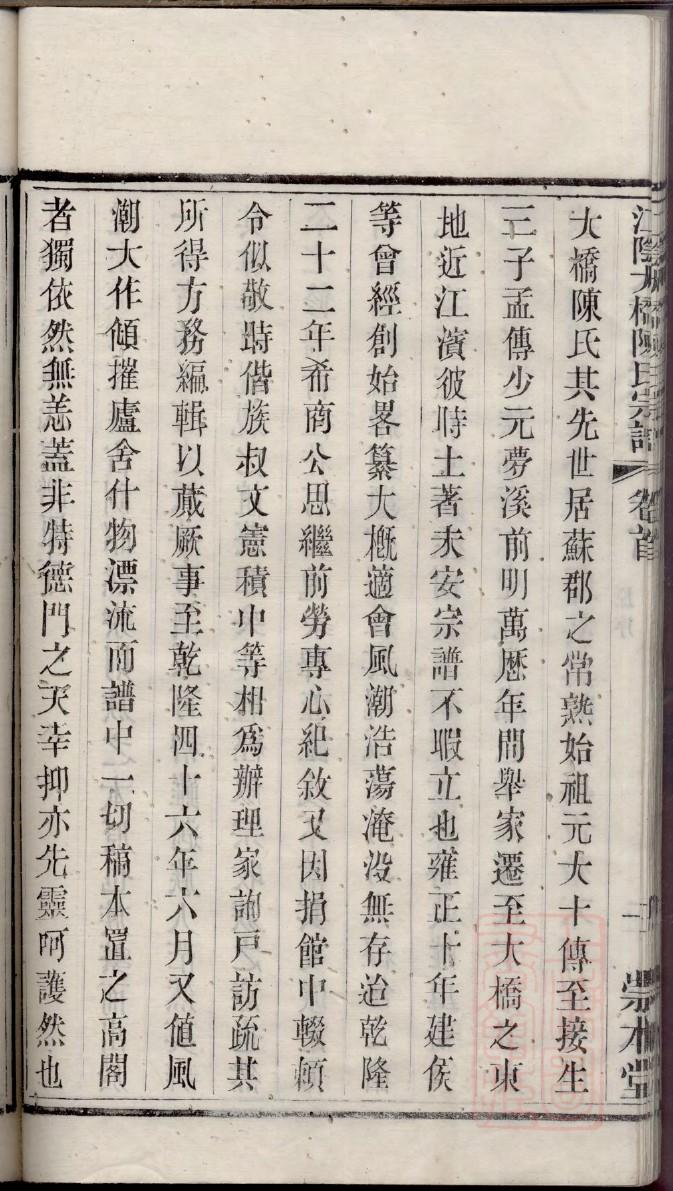 江陰大橋陳氏宗譜 卷首 崇本堂
大橋陳氏其先世居蘇郡之常熟始祖元大十傳至接生
三子孟傳少元夢溪前明萬歷年間舉家遷至大橋之東
地近江濱彼時土著未安宗譜不暇立也雍正十年建侯
等曾經創始畧纂大槪適會風潮浩蕩淹没無存迨乾隆
二十二年希商公思繼前勞專心紀敘又因捐館中輟頼
令似敬時偕族叔文憲積中等相爲辦理家詢戸訪疏其
所得方務編輯以蕆厥事至乾隆四十六年六月又値風
潮大作傾摧廬舍什物漂流而譜中一切稿本置之高閣
者獨依然無恙蓋非特德門之天幸抑亦先靈呵護然也